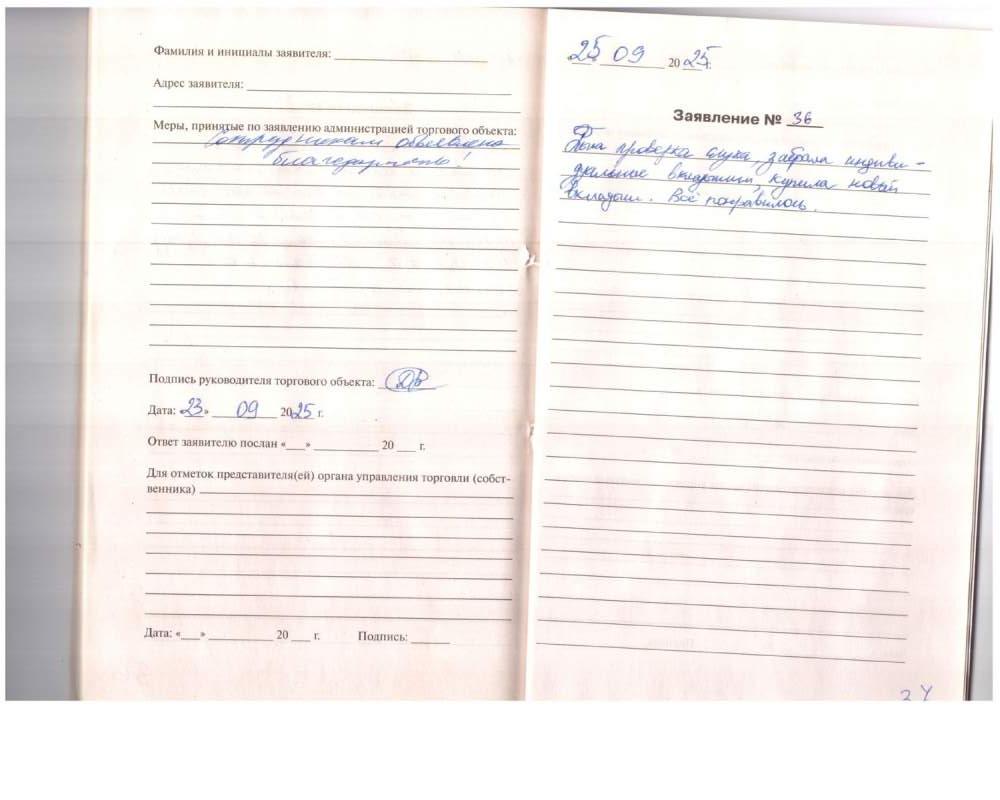 Фамилия и инициалы заявителя:
Адрес заявителя:
Меры, принятые по заявлению администрацией торгового объекта:
Сотрудникам объявлена
благодарность!
Подпись руководителя торгового объекта:
Дата: «23» 09 2025 г.
Ответ заявителю послан «___» ________ 20 ___ г.
Для отметок представителя(ей) органа управления торговли (собст-
венника)
Дата: «___» ________ 20 ___ г. Подпись: ______
25 09 2025г.
Заявление № 36
Была проверка слуха, забрала индиви-
дуальные вкладыши, купила новый
вкладыш. Всё понравилось.